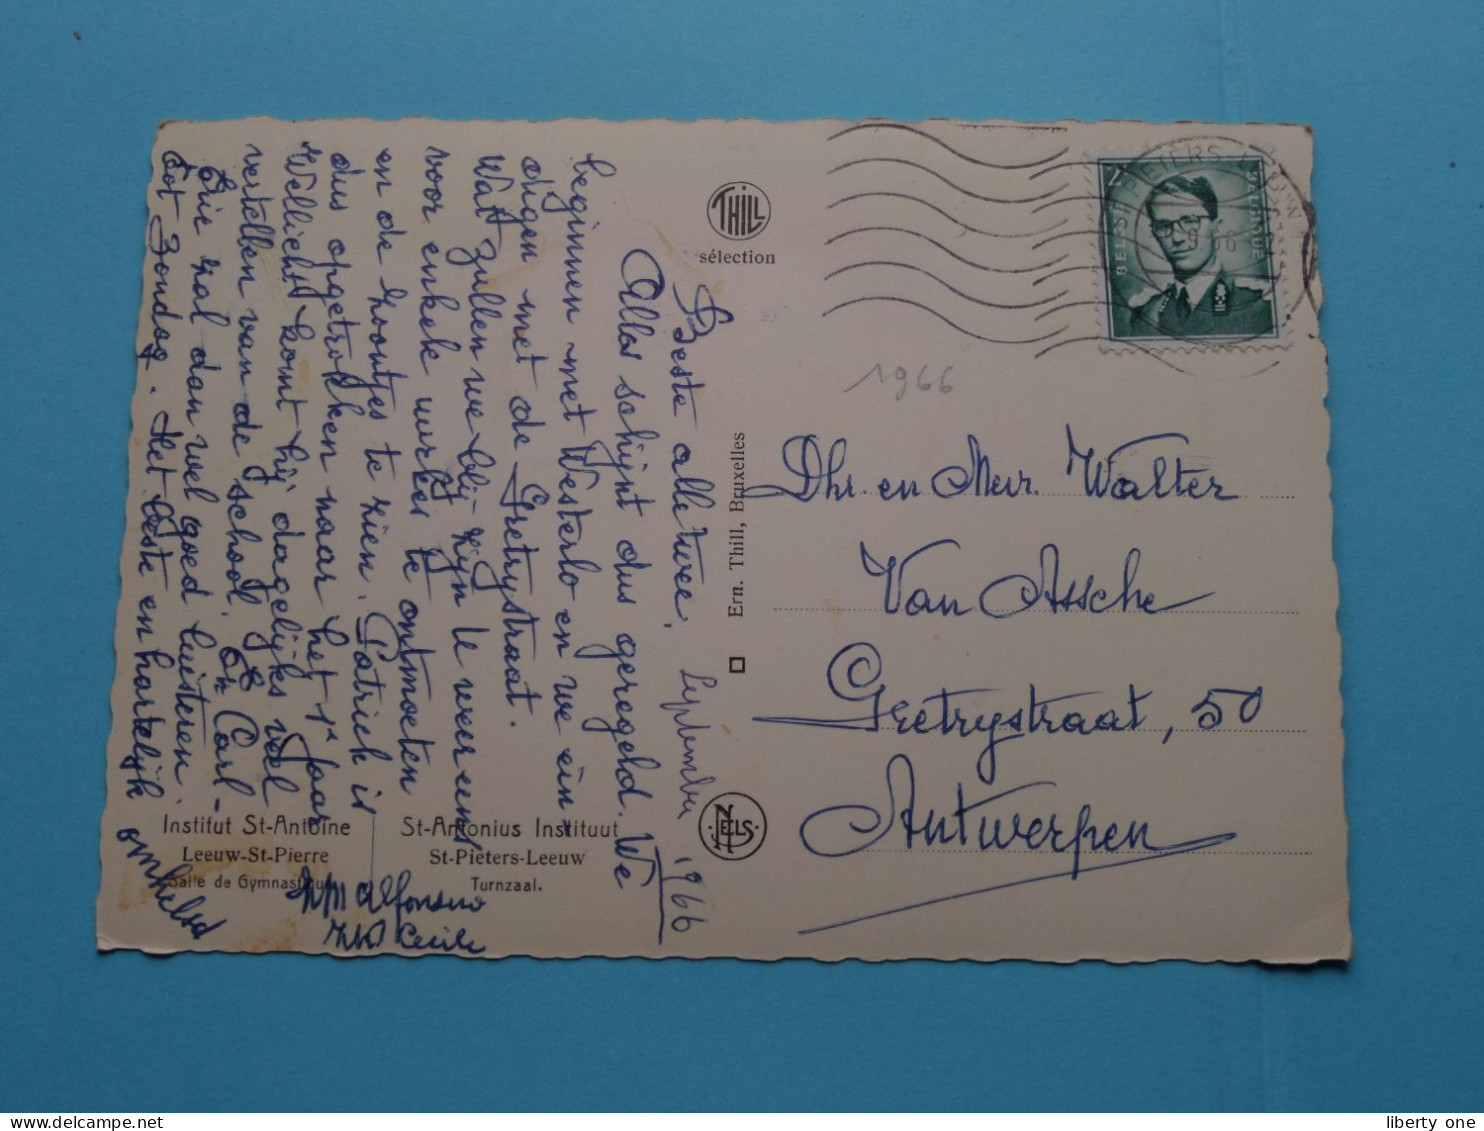 Beste alle twee,
Alles schijnt dus geregeld. We
beginnen met Westerlo en we ein-
digen met de Gretrystraat.
Wat zullen we blij zijn U weer eens
voor enkele uurkes te ontmoeten
en de zoontjes te zien. Patrick is
dus opgetrokken naar het 1e jaar
Wellicht komt hij dagelijks veel
vertellen van de school. En Carl-
Eric zal dan wel goed luisteren.
Tot Zondag. Het beste en hartelijk omhelsd
ZM Alfonsine
ZM Cecile
September 1966
Institut St-Antoine
Leeuw-St-Pierre
Salle de Gymnastique
St-Antonius Instituut
St-Pieters-Leeuw
Turnzaal.
THILL
sélection
Ern. Thill, Bruxelles
NELS
BELGIE BELGIQUE
ST PIETERS LEEUW
9 66
1966
Dhr. en Mevr. Walter
Van Assche
Gretrystraat, 50
Antwerpen
liberty one